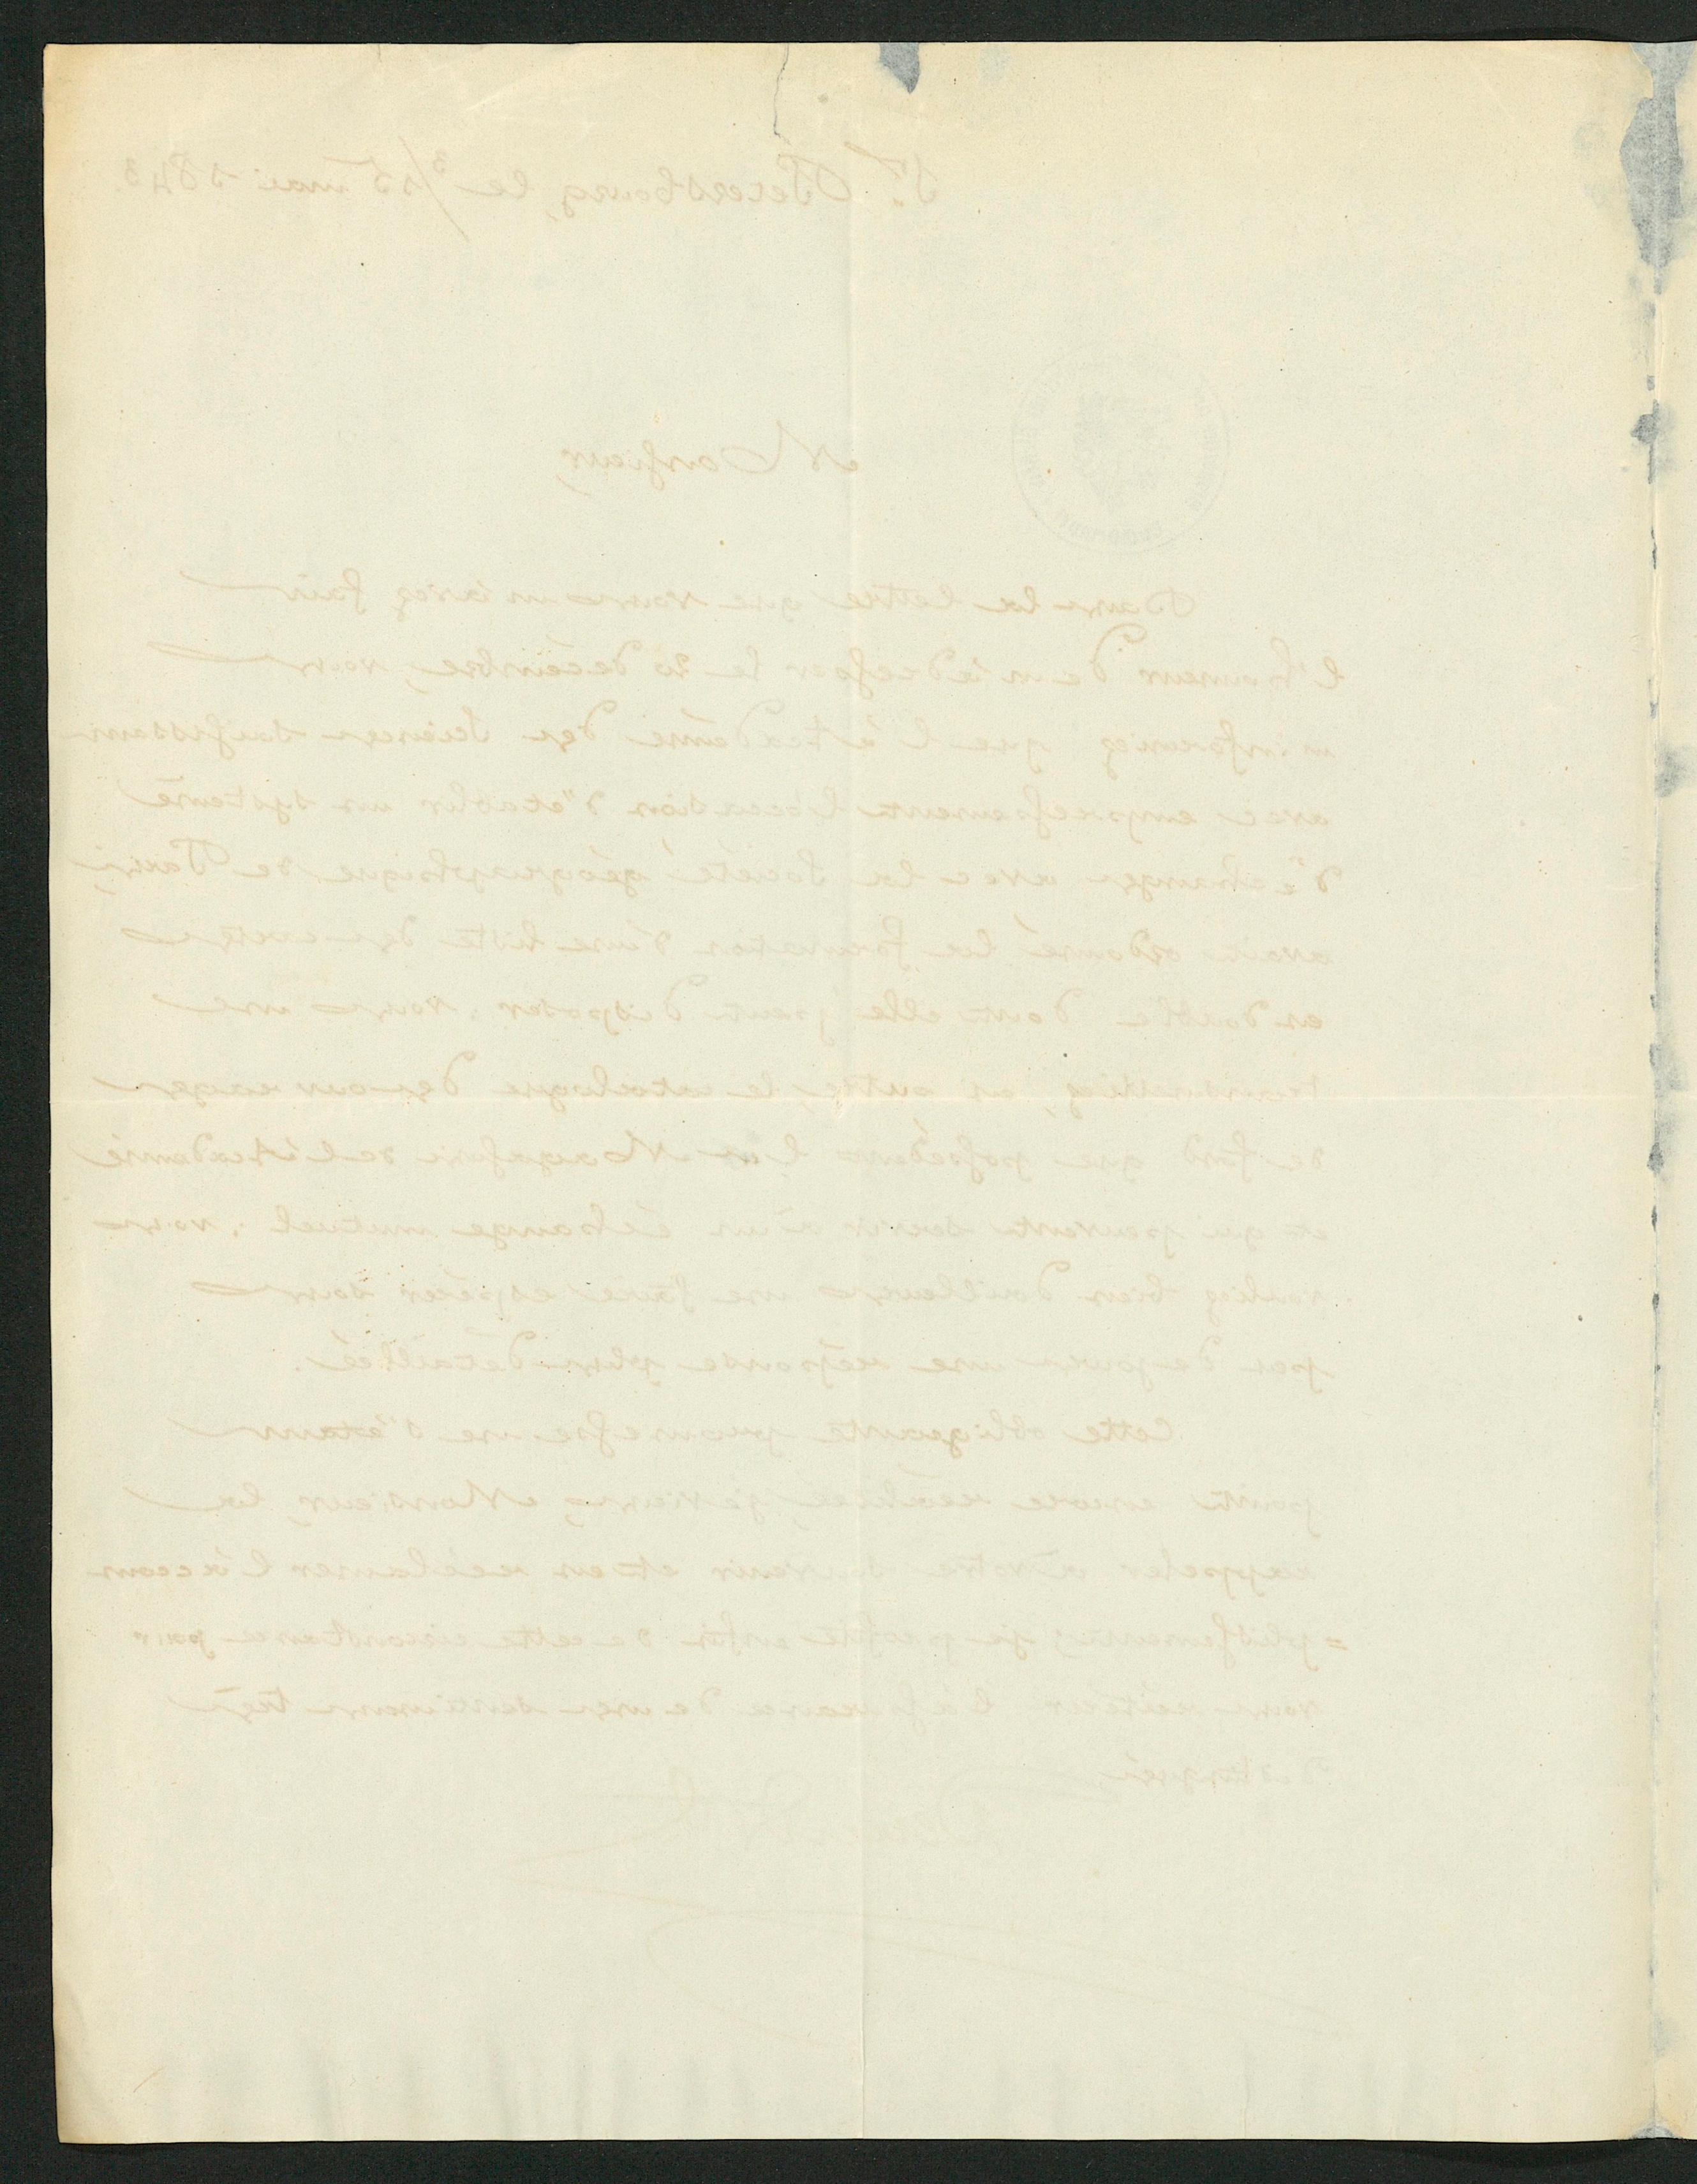 St. Pétersbourg, le 3/15 mai 1843.
Monsieur,
Dans la lettre que vous m'avez fait
l'honneur de m'adresser le 20 décembre, vous
m'informiez que l'Académie des Sciences saisissant
avec empressement l'occasion d'établir un système
d'échanges avec la Société géographique de Paris
avait ordonné la formation d'une liste des cartes
en double dont elle peut disposer. Vous me
transmettiez, en outre, le catalogue des ouvrages
de fond que possèdent les Magasins de l'Académie
et qui peuvent servir à un échange mutuel. Vous
vouliez bien d'ailleurs me faire espérer sous
peu de jours une réponse plus détaillée.
Cette obligeante promesse ne s'étant
point encore réalisée, je viens, Monsieur, la
rappeler à votre souvenir et en réclamer l'accom
=plissement; je profite enfin de cette circonstance pour
vous réitérer l'assurance de mes sentiments très
distingués